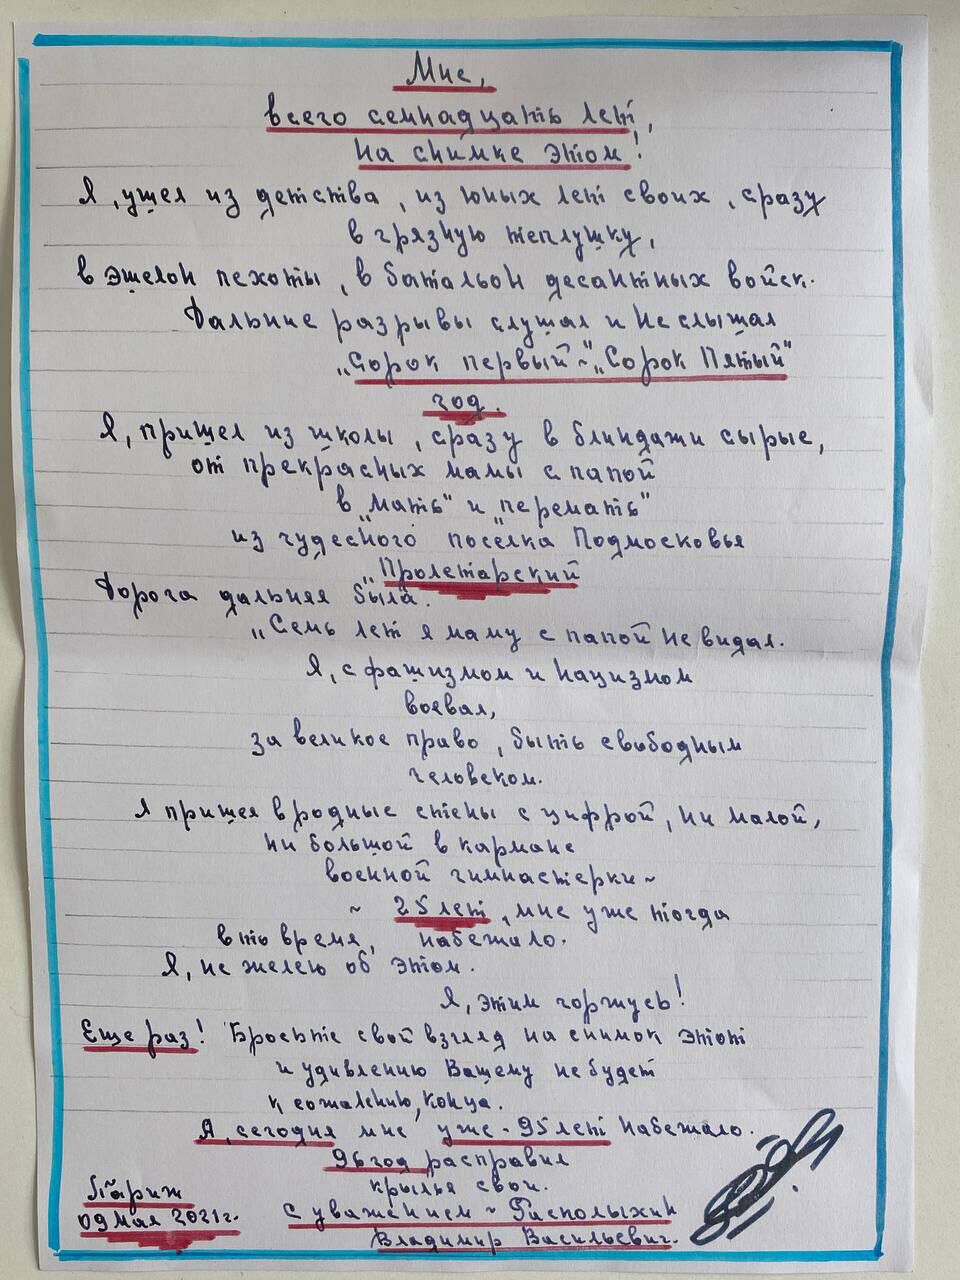 Мне,
всего семнадцать лет,
на снимке этом!
Я, ушел из детства, из юных лет своих, сразу
в грязную теплушку,
в эшелон пехоты, в батальон десантных войск.
Дальние разрывы слушал и не слышал
„Сорок первый"~„Сорок Пятый"
год.
Я, пришел из школы, сразу в блиндажи сырые,
от прекрасных мамы с папой
в „мать" и „перемать"
из чудесного посёлка Подмосковья
„Пролетарский
Дорога дальняя была.
„Семь лет я маму с папой не видал.
Я, с фашизмом и нацизмом
воевал,
за великое право, быть свободным
человеком.
Я пришел в родные стены с цифрой, ни малой,
ни большой в кармане
военной гимнастерки~
~ 25 лет, мне уже тогда
в то время, набежало.
Я, не желею об этом.
Я, этим горжусь!
Еще раз! Бросьте свой взгляд на снимок этот
и удивлению Вашему не будет
к сожалению, конца.
А, сегодня мне уже - 95 лет набежало.
96 год расправил
крылья свои.
Париж
09 Мая 2021г.
с уважением ~
Владимир Васильевич.